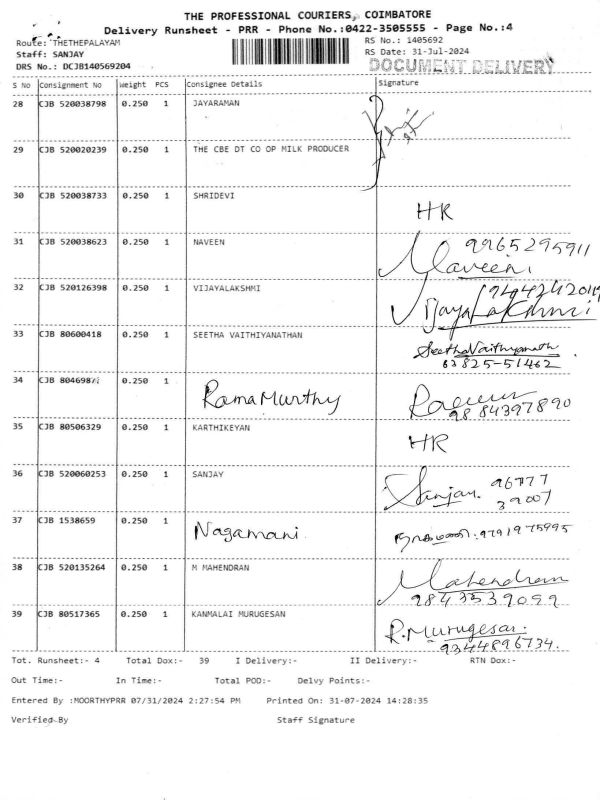 THE PROFESSIONAL COURIERS, COIMBATORE
Delivery Runsheet - PRR - Phone No.:0422-3505555 - Page No.:4
Route: THETHEPALAYAM RS No.: 1405692
Staff: SANJAY RS Date: 31-Jul-2024
DRS No.: DCJB140569204 DOCUMENT DELIVERY
S No Consignment No Weight PCS Consignee Details Signature
28 CJB 520038798 0.250 1 JAYARAMAN
29 CJB 520020239 0.250 1 THE CBE DT CO OP MILK PRODUCER
30 CJB 520038733 0.250 1 SHRIDEVI HR
31 CJB 520038623 0.250 1 NAVEEN 9965295911
Naveen.
32 CJB 520126398 0.250 1 VIJAYALAKSHMI
Vijayalakshmi
33 CJB 80600418 0.250 1 SEETHA VAITHIYANATHAN SeethaVaithiyanath
63825-51462
34 CJB 0.250 1 Rama Murthy
98 84397890
35 CJB 80506329 0.250 1 KARTHIKEYAN HR
36 CJB 520060253 0.250 1 SANJAY Sanjay. 96777
39007
37 CJB 1538659 0.250 1 Nagamani. நாகமணி. 9791975995
38 CJB 520135264 0.250 1 M MAHENDRAN Mahendran
9843539099
39 CJB 80517365 0.250 1 KANMALAI MURUGESAN R. Murugesan.
9344896734.
Tot. Runsheet:- 4 Total Dox:- 39 I Delivery:- II Delivery:- RTN Dox:-
Out Time:- In Time:- Total POD:- Delvy Points:-
Entered By :MOORTHYPRR 07/31/2024 2:27:54 PM Printed On: 31-07-2024 14:28:35
Verified By Staff Signature